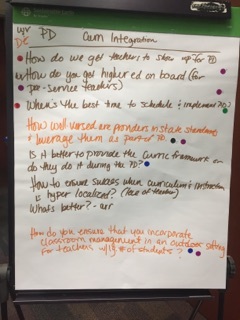 WV PD Curr Integration
DE
How do we get teachers to show up for PD
How do you get higher ed on board (for
pre-service teachers)
When's the best time to schedule & implement PD?
How well versed are providers in state standards
& leverage them as part of PD.
Is it better to provide the curric framework or
do they do it during the PD?
How to ensure success when curriculum & instruction
is hyper localized? (
What's better? -
How do you ensure that you incorporate
classroom management in an outdoor setting
for teachers w/ # of students?